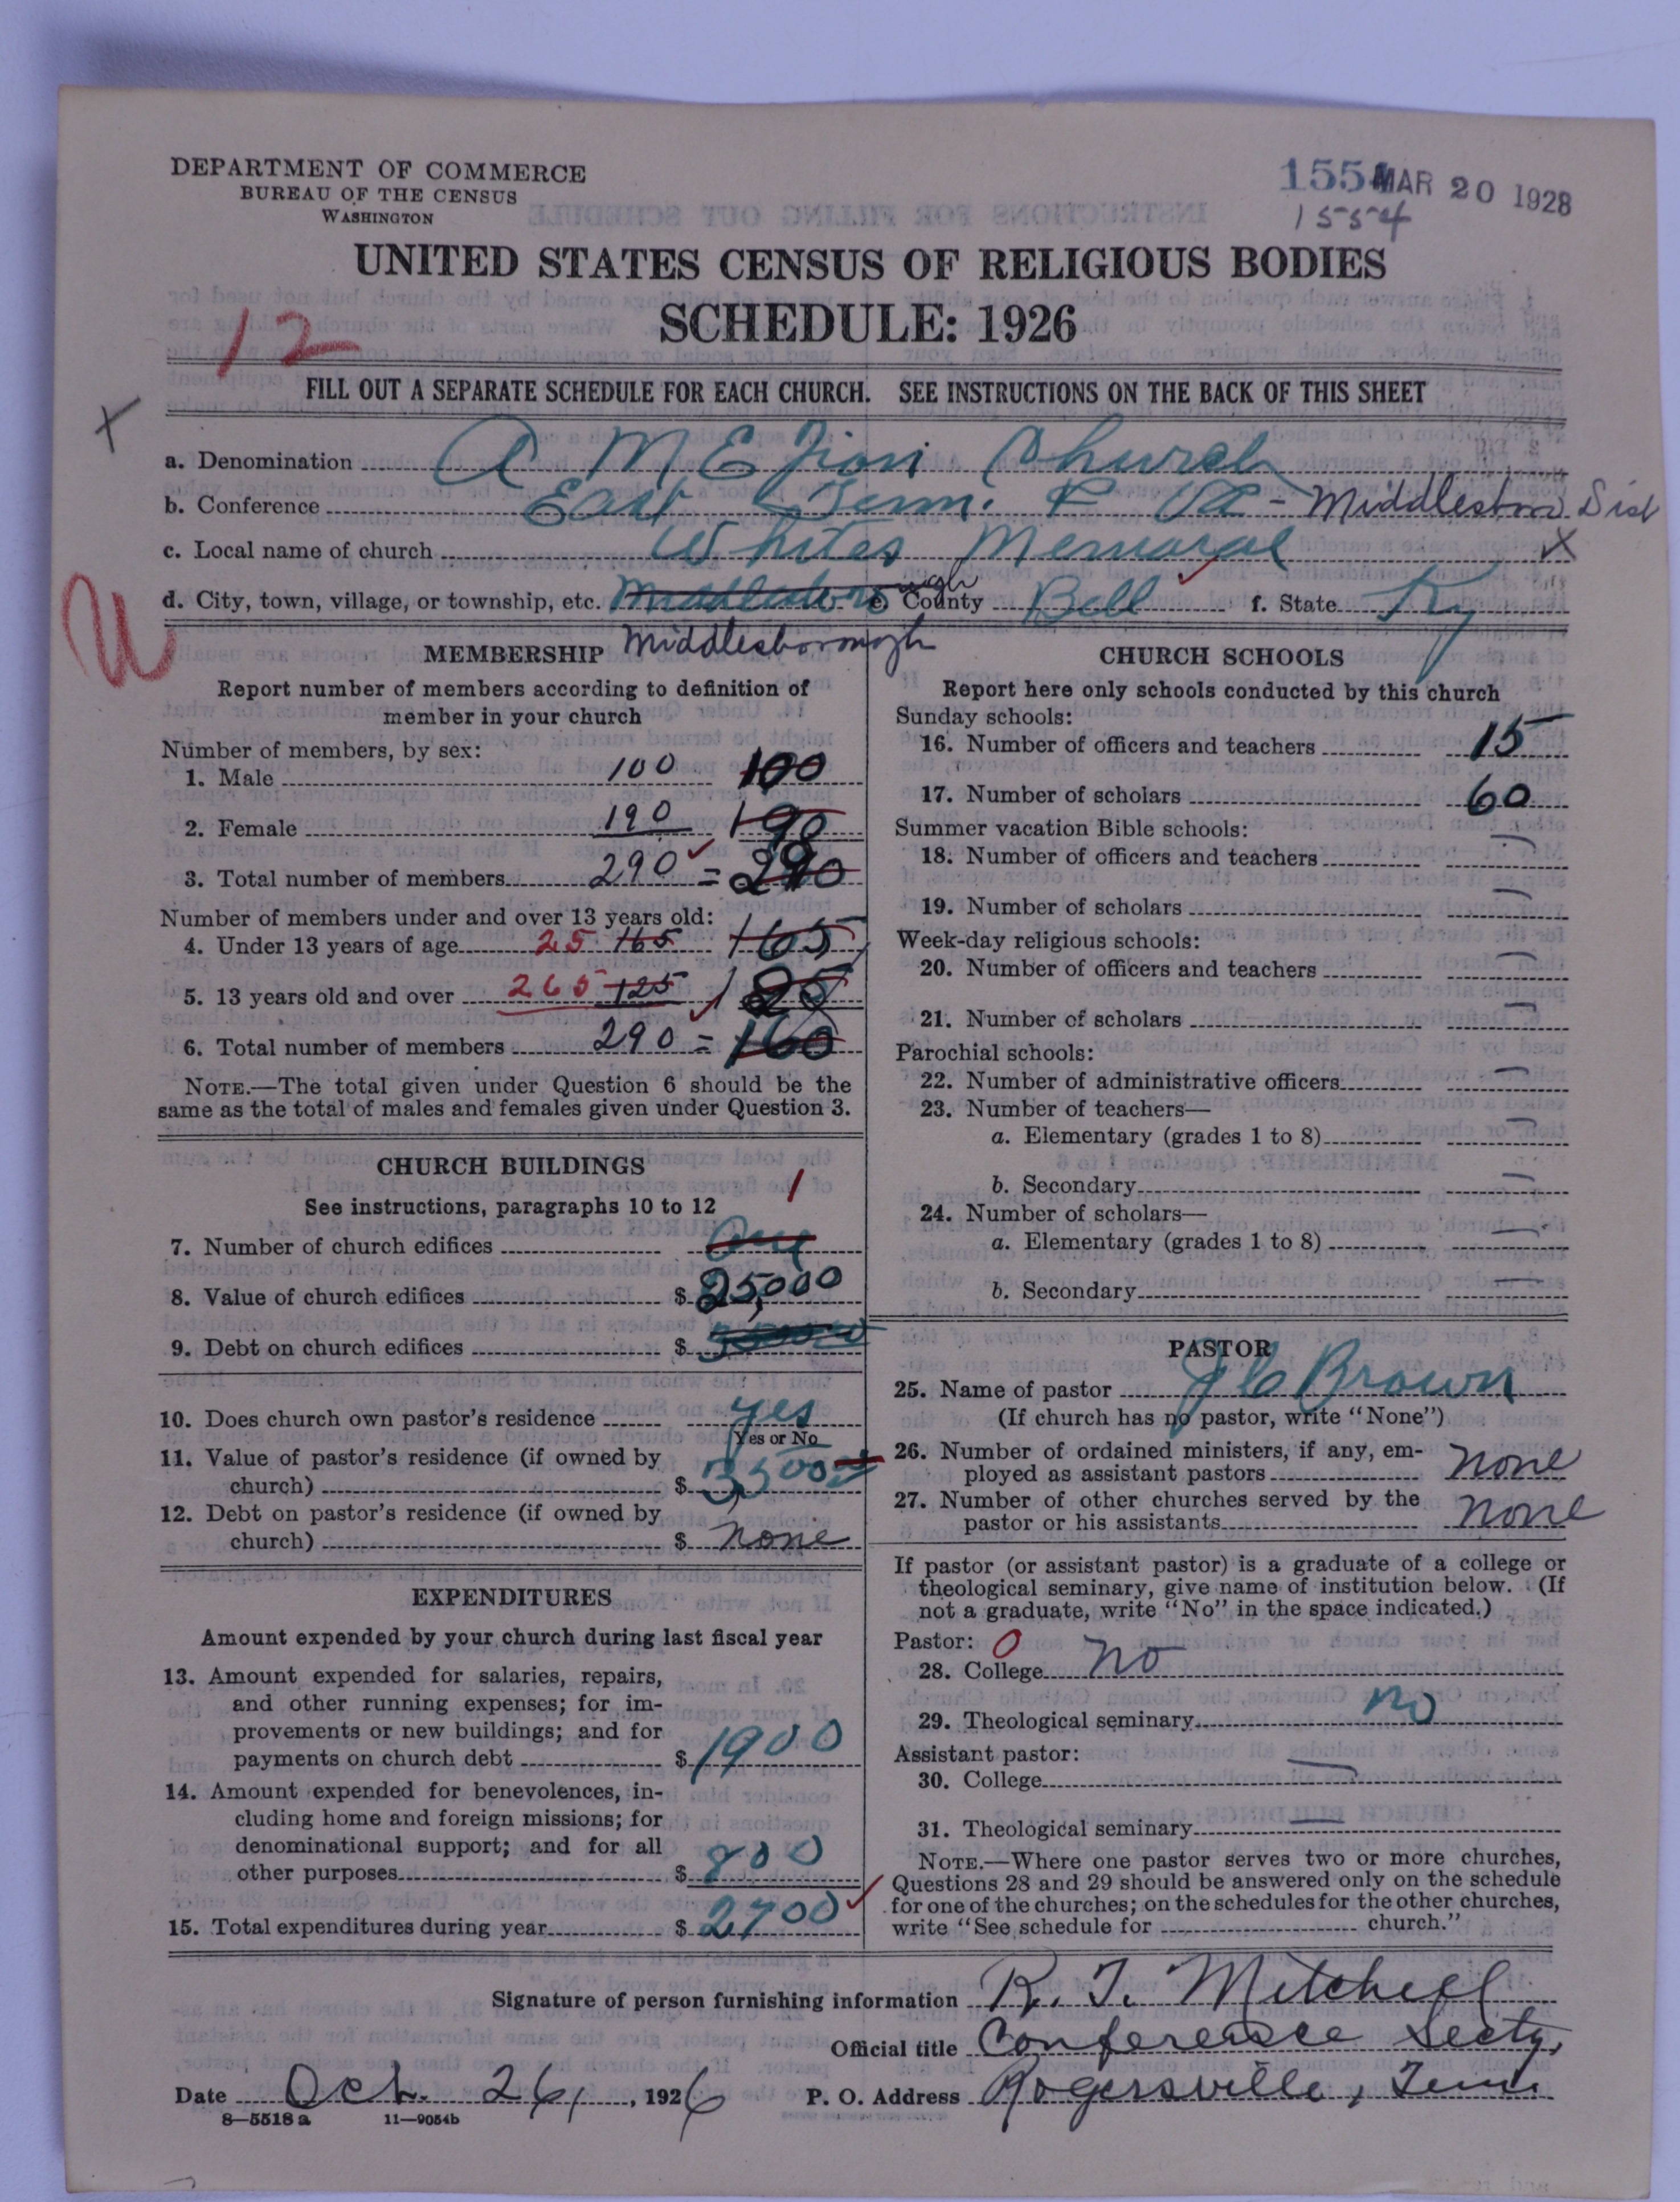 DEPARTMENT OF COMMERCE
BUREAU OF THE CENSUS
WASHINGTON
1554 MAR 20 1928
1554
UNITED STATES CENSUS OF RELIGIOUS BODIES
SCHEDULE: 1926
12
FILL OUT A SEPARATE SCHEDULE FOR EACH CHURCH. SEE INSTRUCTIONS ON THE BACK OF THIS SHEET
X
a. Denomination A M E Zion Church
b. Conference East Tenn. & Va - Middlesboro Dist
c. Local name of church Whites Memorial X
d. City, town, village, or township, etc. Middlesborough e. County Bell f. State Ky
U
MEMBERSHIP Middlesborough
Report number of members according to definition of
member in your church
Number of members, by sex:
1. Male 100 100
2. Female 190 190
3. Total number of members 290 = 290
Number of members under and over 13 years old:
4. Under 13 years of age 25 165 165
5. 13 years old and over 265 125 125
6. Total number of members 290 = 160
NOTE.—The total given under Question 6 should be the
same as the total of males and females given under Question 3.
CHURCH BUILDINGS
See instructions, paragraphs 10 to 12 1
7. Number of church edifices One
8. Value of church edifices $ 25,000
9. Debt on church edifices $
10. Does church own pastor's residence yes
Yes or No
11. Value of pastor's residence (if owned by
church) $ 3500
12. Debt on pastor's residence (if owned by
church) $ none
EXPENDITURES
Amount expended by your church during last fiscal year
13. Amount expended for salaries, repairs,
and other running expenses; for im-
provements or new buildings; and for
payments on church debt $ 1900
14. Amount expended for benevolences, in-
cluding home and foreign missions; for
denominational support; and for all
other purposes $ 800
15. Total expenditures during year $ 2700
CHURCH SCHOOLS
Report here only schools conducted by this church
Sunday schools:
16. Number of officers and teachers 15
17. Number of scholars 60
Summer vacation Bible schools:
18. Number of officers and teachers —
19. Number of scholars —
Week-day religious schools:
20. Number of officers and teachers —
21. Number of scholars —
Parochial schools:
22. Number of administrative officers —
23. Number of teachers—
a. Elementary (grades 1 to 8) —
b. Secondary —
24. Number of scholars—
a. Elementary (grades 1 to 8) —
b. Secondary —
PASTOR
25. Name of pastor J C Brown
(If church has no pastor, write "None")
26. Number of ordained ministers, if any, em-
ployed as assistant pastors none
27. Number of other churches served by the
pastor or his assistants none
If pastor (or assistant pastor) is a graduate of a college or
theological seminary, give name of institution below. (If
not a graduate, write "No" in the space indicated.)
Pastor: 0
28. College no
29. Theological seminary no
Assistant pastor:
30. College —
31. Theological seminary —
NOTE.—Where one pastor serves two or more churches,
Questions 28 and 29 should be answered only on the schedule
for one of the churches; on the schedules for the other churches,
write "See schedule for church."
Signature of person furnishing information R. T. Mitchell
Official title Conference Secty.
Date Oct. 26, 1926 P. O. Address Rogersville, Tenn.
8—5518 a 11—9054b